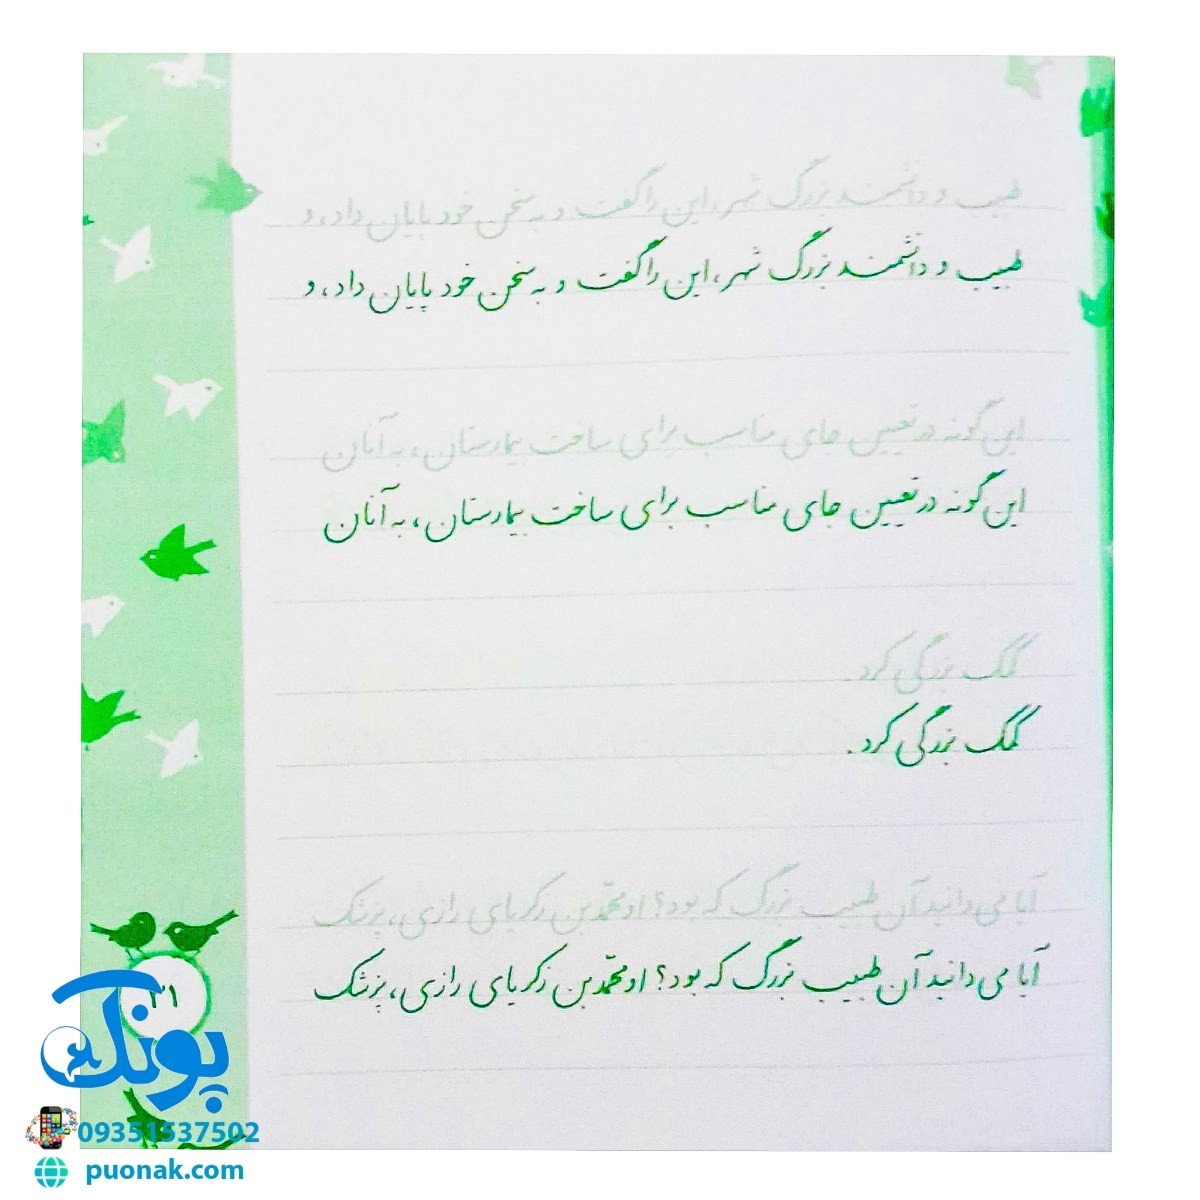 طبیب و دانشمند بزرگ شهر، این را گفت و به سخن خود پایان داد، و
طبیب و دانشمند بزرگ شهر، این را گفت و به سخن خود پایان داد، و
این گونه در تعیین جای مناسب برای ساخت بیمارستان، به آنان
این گونه در تعیین جای مناسب برای ساخت بیمارستان، به آنان
کمک بزرگی کرد.
کمک بزرگی کرد.
آیا می دانید آن طبیب بزرگ که بود؟ او محمّد بن زکریای رازی، پزشک
آیا می دانید آن طبیب بزرگ که بود؟ او محمّد بن زکریای رازی، پزشک
۳۱
پونک
09351537502
puonak.com